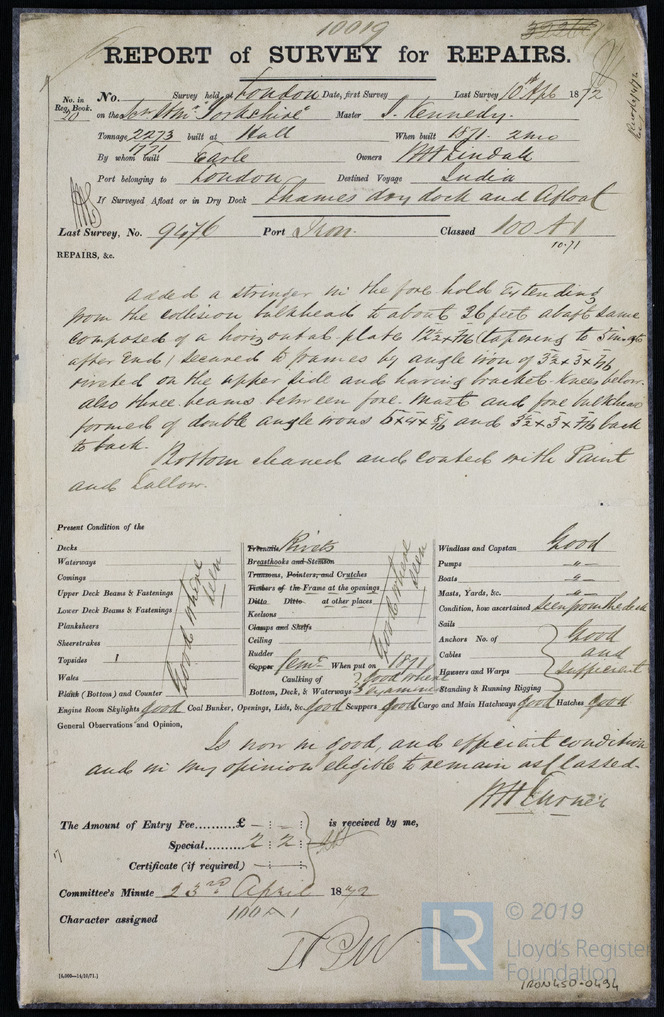 10019
REPORT of SURVEY for REPAIRS.
No. in Reg. Book. 20
No. Survey held at London Date, first Survey Last Survey 10th Apl 1872
on the "Yorkshire" Master J. Kennedy.
Tonnage 2273 built at Hull When built 1871. 2mo
1771
By whom built Earle Owners
Port belonging to London Destined Voyage India
If Surveyed Afloat or in Dry Dock Thames dry dock and Afloat
Last Survey, No. 9476 Port Iron. Classed 100 A 1
10.71
REPAIRS, &c.
Added a stringer in the fore hold Extending
from the collision bulkhead to about 26 feet abaft same
composed of a horizontal plate 12½ x 7/16 (tapering to 5 in at
after End) secured to frames by angle iron of 3½ x 3 x 7/16
rivited on the upper side and having bracket knees below
also three beams between fore mast and fore bulkhead
formed of double angle irons 5 x 4 x 8/16 and 3½ x 3 x 7/16 back
to back.
Bottom cleaned and coated with Paint
and Tallow.
Present Condition of the
Decks
Waterways
Comings
Upper Deck Beams & Fastenings
Lower Deck Beams & Fastenings
Planksheers
Sheerstrakes
Topsides
Wales
Plank (Bottom) and Counter
Good where seen
Treenails Rivets
Breasthooks and Stemson
Transoms, Pointers, and Crutches
Timbers of the Frame at the openings
Ditto Ditto at other places
Keelsons
Clamps and Shelfs
Ceiling
Rudder
Copper Cemt. When put on 1871
Caulking of
Bottom, Deck, & Waterways good where examined
Good where seen
Windlass and Capstan Good
Pumps -"-
Boats -"-
Masts, Yards, &c. -"-
Condition, how ascertained seen from the deck
Sails
Anchors No. of
Cables
Hawsers and Warps
Standing & Running Rigging
Good and sufficient
Engine Room Skylights good Coal Bunker, Openings, Lids, &c. good Scuppers good Cargo and Main Hatchways good Hatches good
General Observations and Opinion,
Is now in good, and efficient condition
and in my opinion eligible to remain as Classed.
The Amount of Entry Fee..........£ — : : is received by me,
Special.......... 2 : 2 :
Certificate (if required) — : :
Committee's Minute 23rd April 1872
Character assigned 100 A 1
[6,000—14/10/71.]
LR
© 2019
Lloyd's Register
Foundation
IRON450-0494